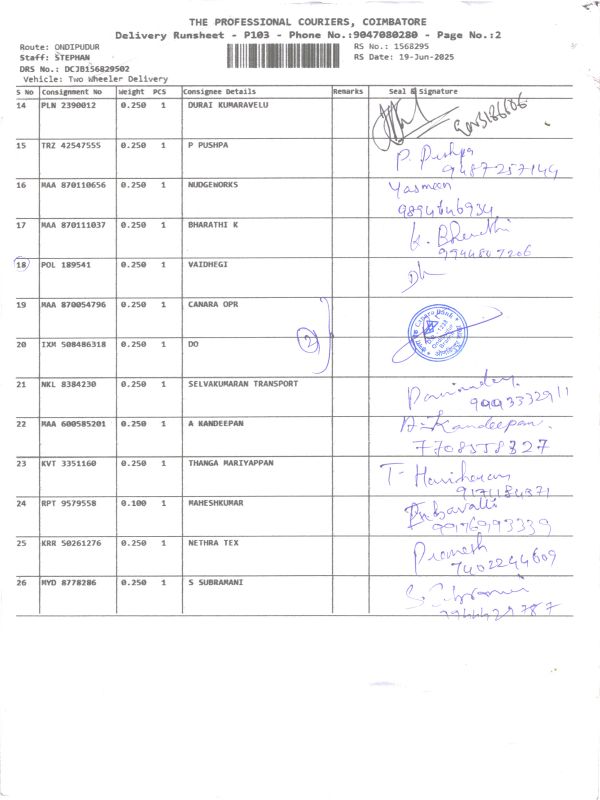 THE PROFESSIONAL COURIERS, COIMBATORE
Delivery Runsheet - P103 - Phone No.:9047080280 - Page No.:2
Route: ONDIPUDUR RS No.: 1568295
Staff: STEPHAN RS Date: 19-Jun-2025
DRS No.: DCJB156829502
Vehicle: Two Wheeler Delivery
S No Consignment No Weight PCS Consignee Details Remarks Seal & Signature
14 PLN 2390012 0.250 1 DURAI KUMARAVELU
15 TRZ 42547555 0.250 1 P PUSHPA P. Pushpa
9487257144
16 MAA 870110656 0.250 1 NUDGEWORKS Yasmeen
9894646934
17 MAA 870111037 0.250 1 BHARATHI K K. Bharathi
9944847206
18 POL 189541 0.250 1 VAIDHEGI
19 MAA 870054796 0.250 1 CANARA OPR
20 IXM 508486318 0.250 1 DO 2
21 NKL 8384230 0.250 1 SELVAKUMARAN TRANSPORT
9993332911
22 MAA 600585201 0.250 1 A KANDEEPAN A. Kandeepan
7708558827
23 KVT 3351160 0.250 1 THANGA MARIYAPPAN T- Hariharan
9171184371
24 RPT 9579558 0.100 1 MAHESHKUMAR
9976993339
25 KRR 50261276 0.250 1 NETHRA TEX Pramesh
7402244609
26 MYD 8778286 0.250 1 S SUBRAMANI